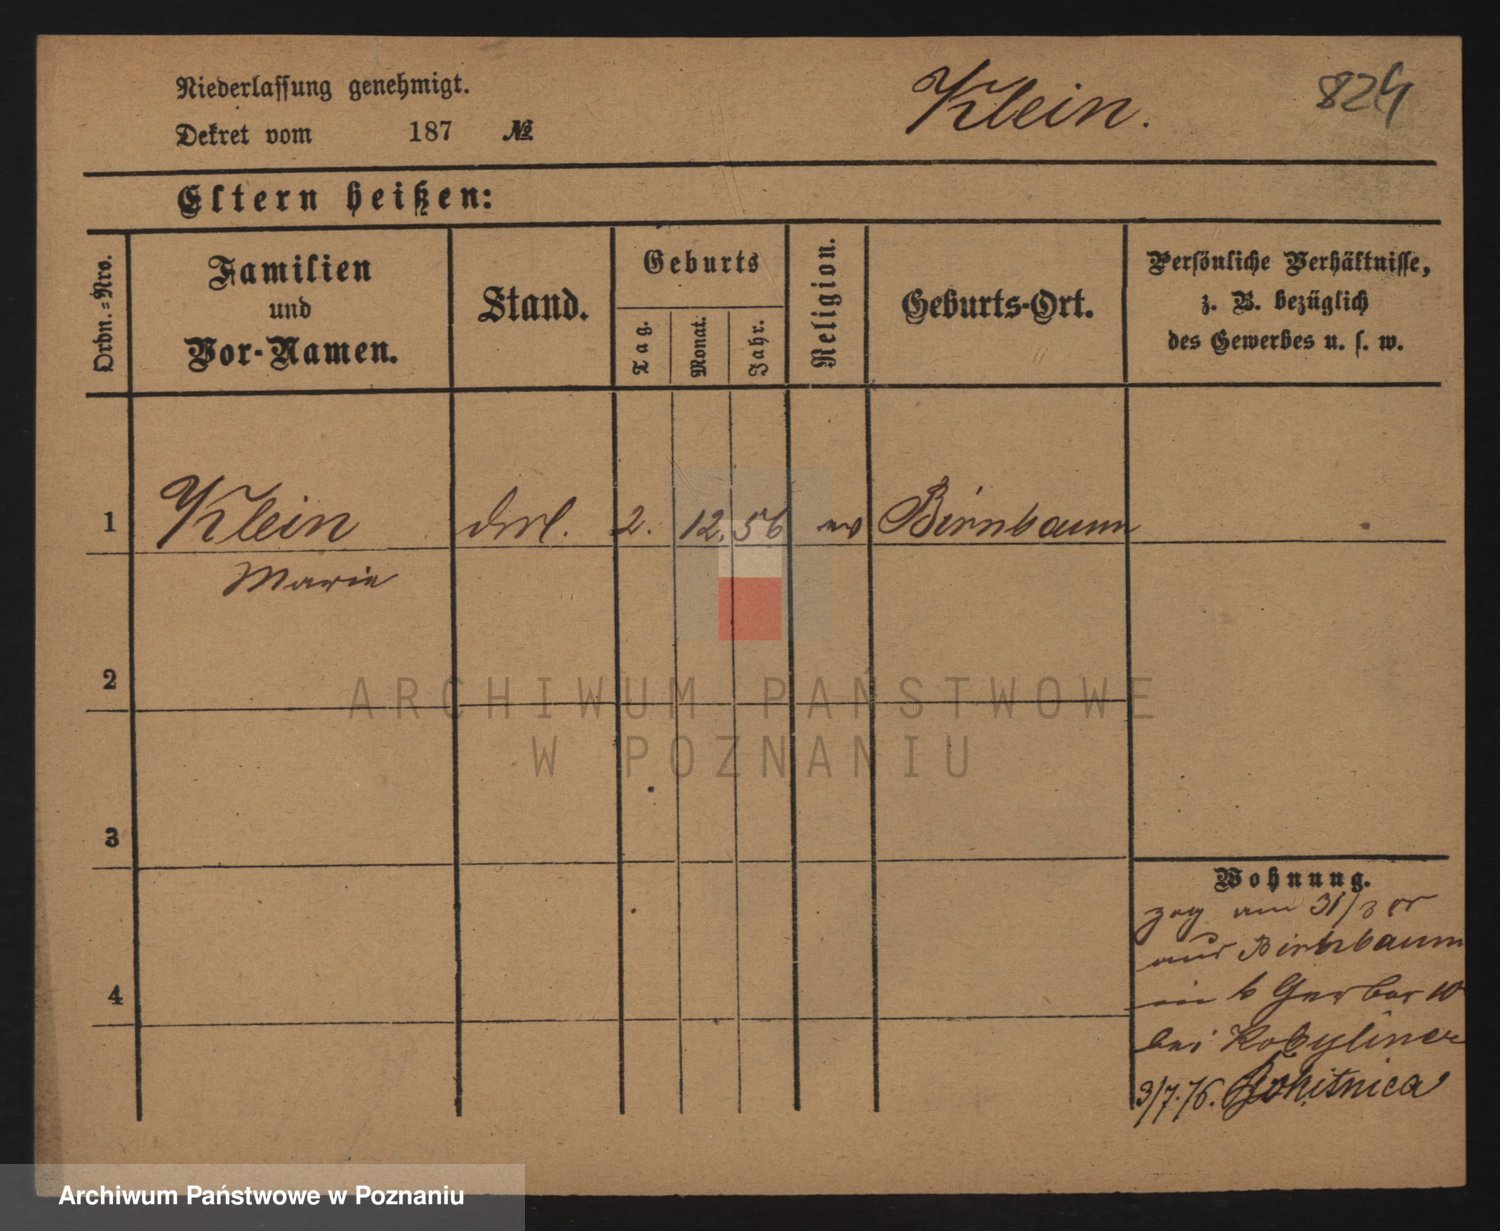 Niederlassung genehmigt.
Dekret vom 187 №
Klein.
824
Eltern heißen:
Ordn.=Nro.
Familien
und
Vor-Namen.
Stand.
Geburts
Tag.
Monat.
Jahr.
Religion.
Geburts-Ort.
Persönliche Verhältnisse,
z. B. bezüglich
des Gewerbes u. s. w.
1 Klein 2. 12. 56 ev Birnbaum
Marie
2
ARCHIWUM PAŃSTWOWE
W POZNANIU
3
Wohnung.
zog am 31/3 cr
aus Birnbaum
4
in Gerber 10
bei Kobyliner
3/7.76.
Archiwum Państwowe w Poznaniu